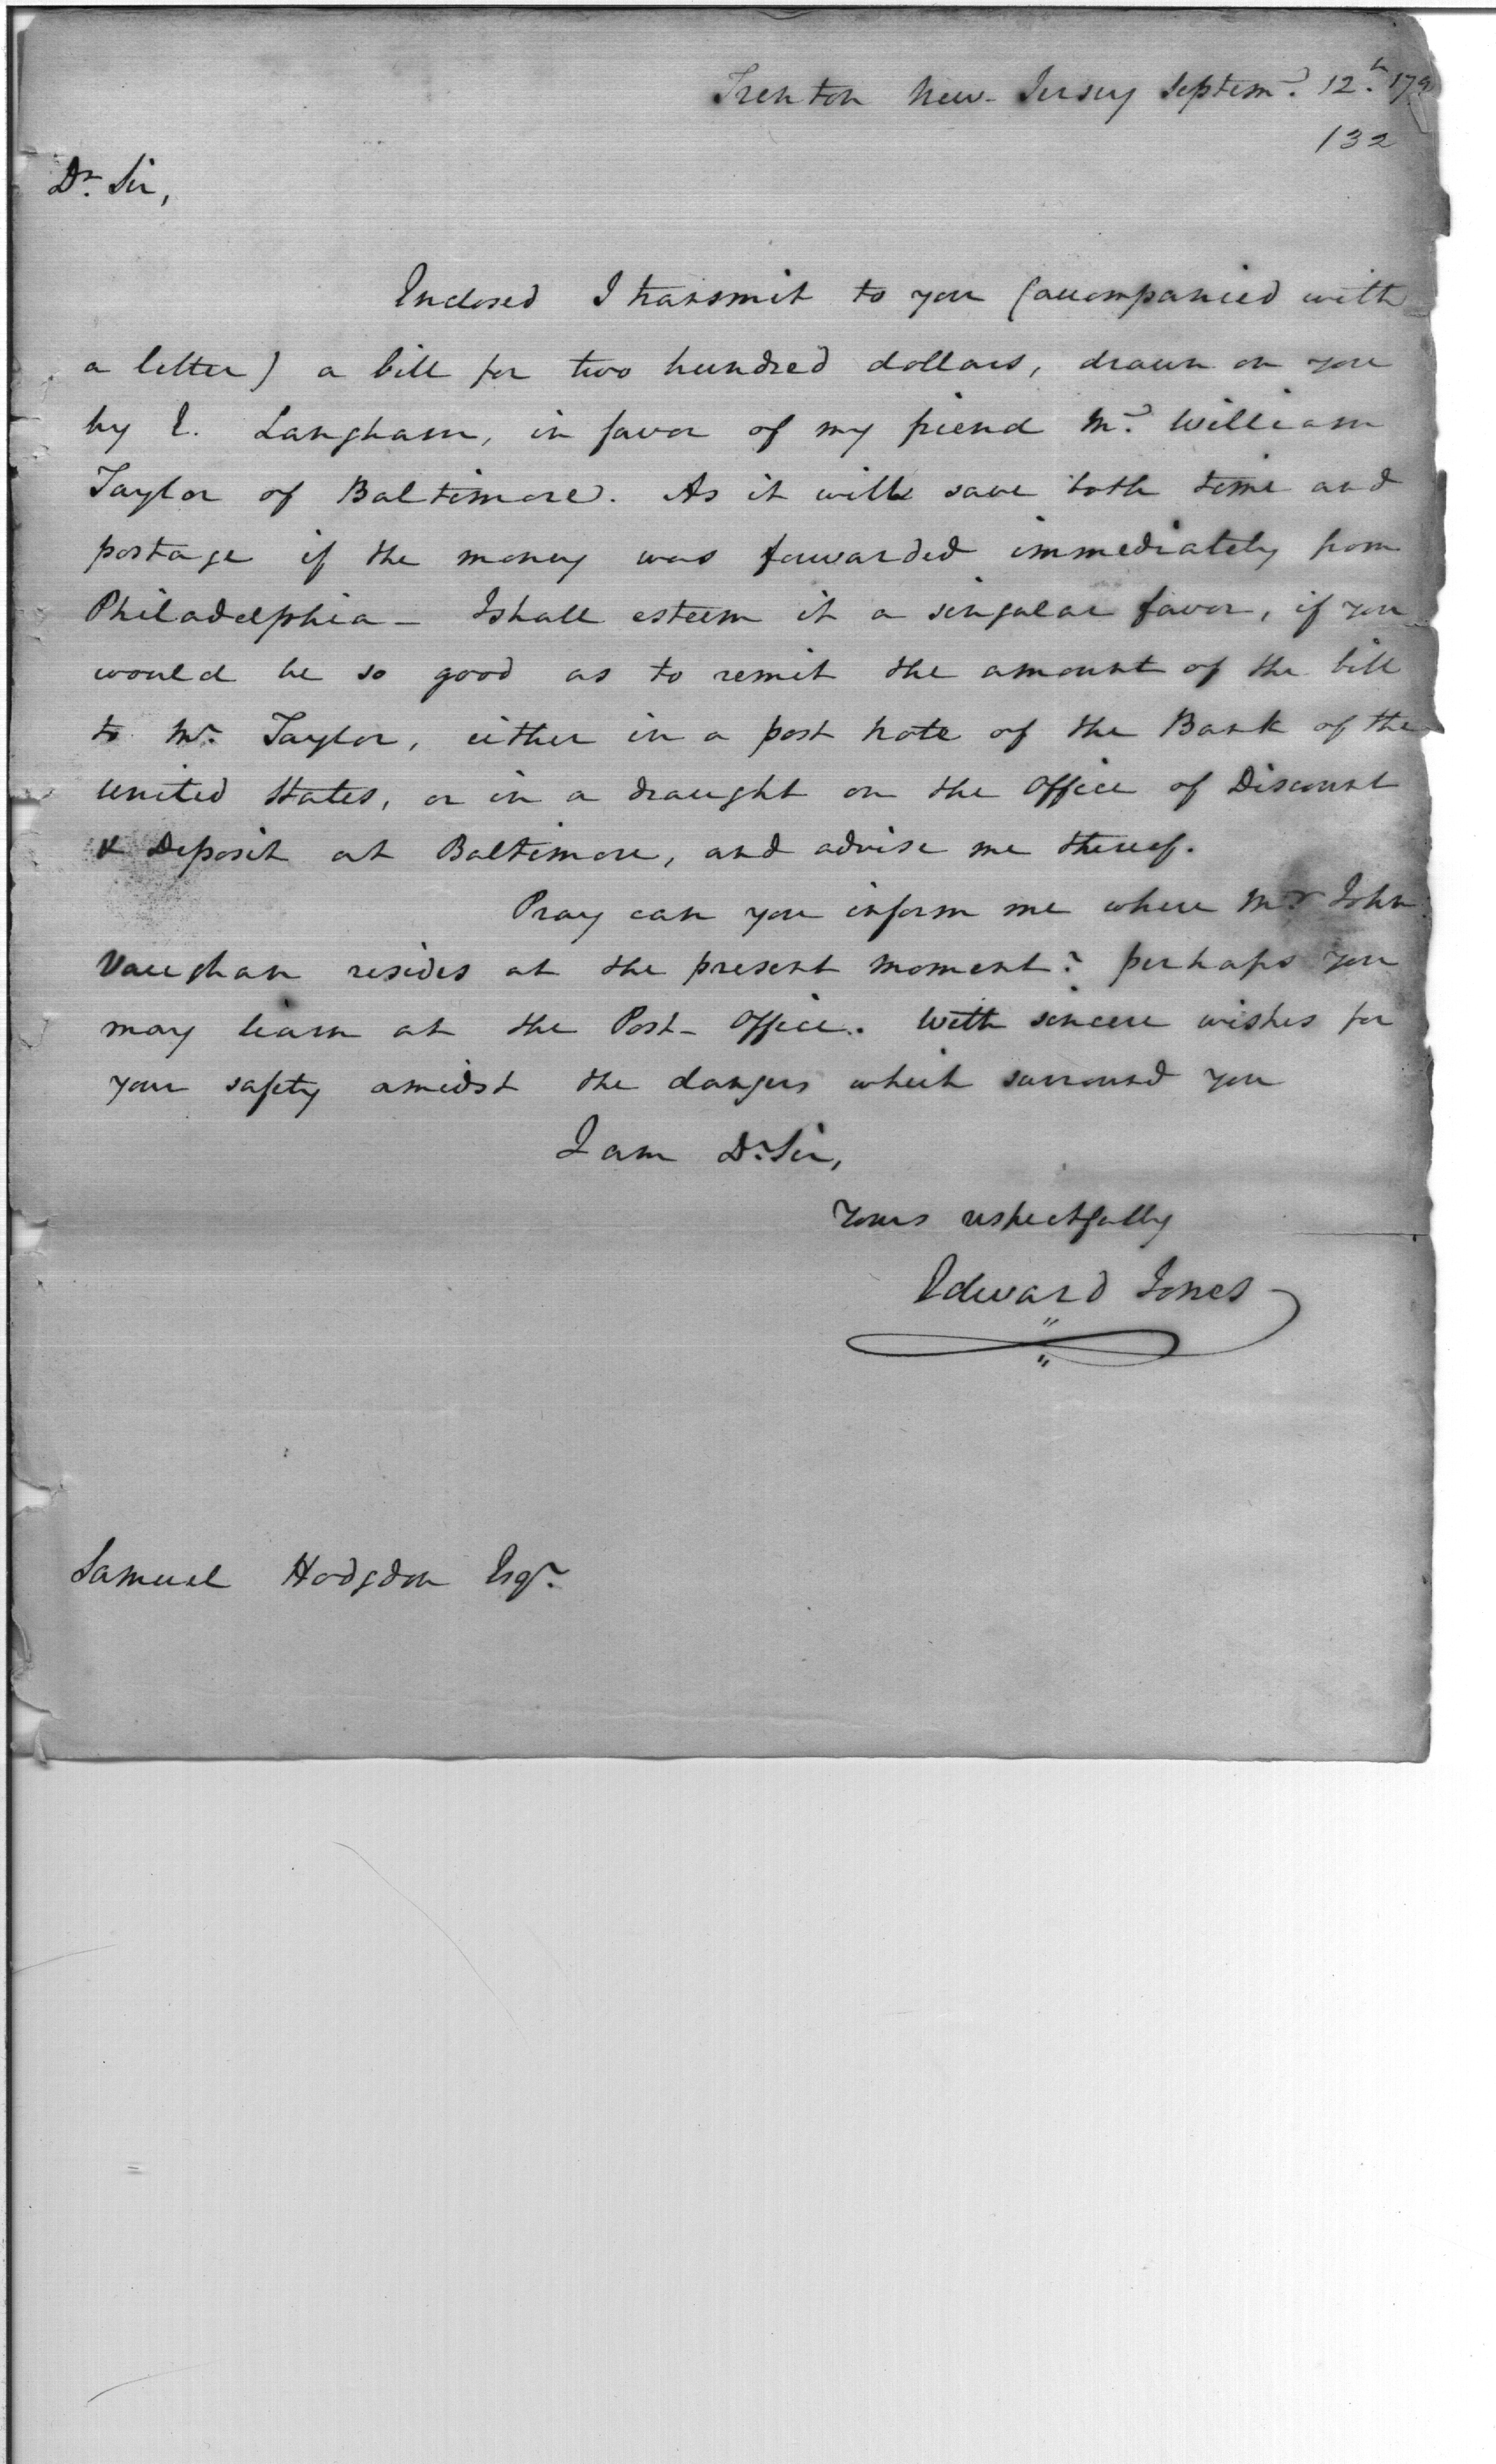 Trenton New-Jersey Septemr. 12.h 179
132
Dr. Sir,
Enclosed I transmit to you (accompanied with
a letter) a bill for two hundred dollars, drawn on you
by E. Langham, in favor of my friend Mr. William
Taylor of Baltimore. As it will save both time and
postage if the money was forwarded immediately from
Philadelphia - I shall esteem it a singular favor, if you
would be so good as to remit the amount of the bill
to Mr. Taylor, either in a post note of the Bank of the
United States, or in a draught on the Office of Discount
& Deposit at Baltimore, and advise me thereof.
Pray can you inform me where Mr. John
Vaughan resides at the present moment? perhaps you
may learn at the Post-Office. With sincere wishes for
your safety amidst the dangers which surround you
I am Dr. Sir,
Yours respectfully
Edward Jones
Samuel Hodgdon Esqr.